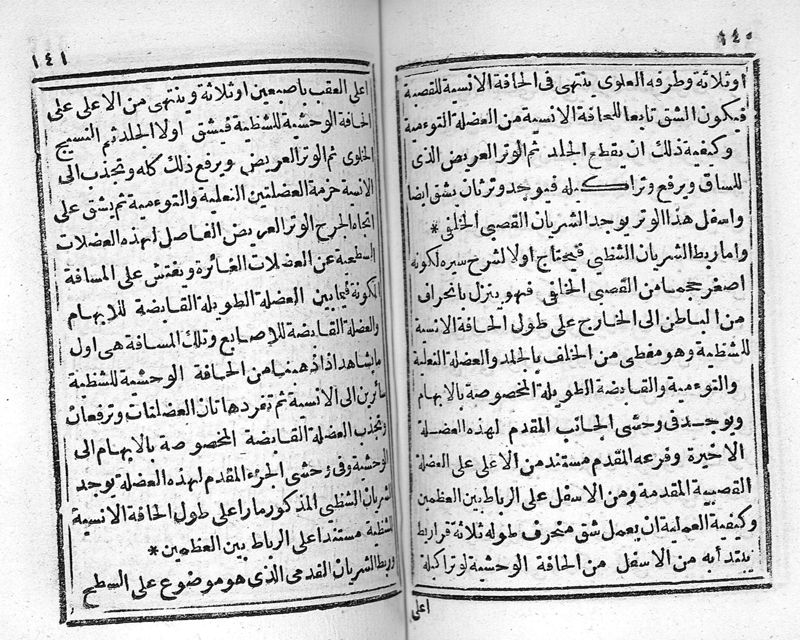 ١٤٠
او ثلاثة وطرفه العلوى ينتهى فى الحافة الانسية للقصبة
فيكون الشق تابعا للحافة الانسية من العضلة التوءمية
وكيفية ذلك ان يقطع الجلد ثم الوتر العريض الذى
للساق ويرفع وتر اكيله فيوجد وترثان يشق ايضا
واسفل هذا الوتر يوجد الشريان القصبى الخلفى *
واما ربط الشريان الشظبى فيحتاج اولا لشرح سيره لكونه
اصغر حجما من القصبى الخلفى فهو ينزل بانحراف
من الباطن الى الخارج على طول الحافة الانسية
للشظية وهو مغطى من الخلف بالجلد والعضلة النعلية
والتوءمية والقابضة الطويلة المخصوصة بالابهام
ويوجد فى وحشى الجانب المقدم لهذه العضلة
الاخيرة وفرعه المقدم مستند من الاعلى على العضلة
القصبية المقدمة ومن الاسفل على الرباط بين العظمين
وكيفية العملية ان يعمل شق منحرف طوله ثلاثة قراريط
يبتدأ به من الاسفل من الحافة الوحشية لوتر اكيلة
اعلى
١٤١
اعلى العقب باصبعين او ثلاثة وينتهى من الاعلى على
الحافة الوحشية للشظية فيشق اولا الجلد ثم النسيج
الخلوى ثم الوتر العريض ويرفع ذلك كله وتجذب الى
الانسة حزمة العضلتين النعلية والتوءمية ثم يشق على
اتجاه الجرح الوتر العريض الفاصل لهذه العضلات
السطحية عن العضلات الغائرة ويفتش على المسافة
المكونة فيما بين العضلة الطويلة القابضة للابهام
والعضلة القابضة للاصابع وتلك المسافة هى اول
ما يشاهد اذا ذهبنا من الحافة الوحشية للشظية
سائرين الى الانسية ثم تفرد هاتان العضلتان وترفعان
وتجذب العضلة القابضة المخصوصة بالابهام الى
الوحشية وفى وحشى الجزء المقدم لهذه العضلة يوجد
الشريان الشظبى المذكور مارا على طول الحافة الانسية
للشظية مستندا على الرباط بين العظمين *
وربط الشريان القدمى الذى هو موضوع على السطح